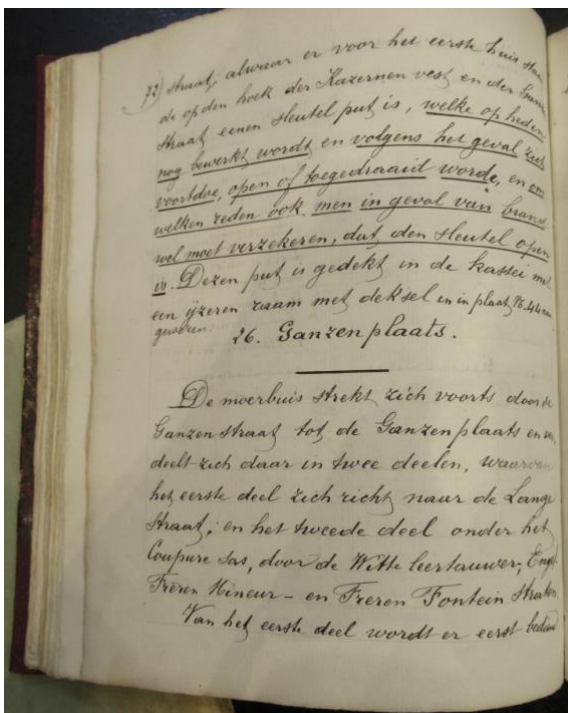 72) straat, alwaar er voor het eerste huis staan
de op den hoek der Kazernen vest en der Ganzen
straat eenen sleutel put is, welke op heden
nog bewerkt wordt en volgens het geval zich
voortdoe, open of toegedraaid worde, en om
welken reden ook men in geval van brand
wel moet verzekeren, dat den sleutel open
is. Dezen put is gedekt in de kassei met
een ijzeren raam met deksel en in plaat
26. Ganzenplaats.
De moerbuis strekt zich voorts door de
Ganzen straat tot de Ganzenplaats en ver
deelt zich daar in twee deelen, waarvan
het eerste deel zich richt naar de Lange
straat; en het tweede deel onder het
Coupure sas, door de Witte leertauwer, Engel
Freren Mineur - en Freren Fontein straten
Van het eerste deel wordt er eerst bediend